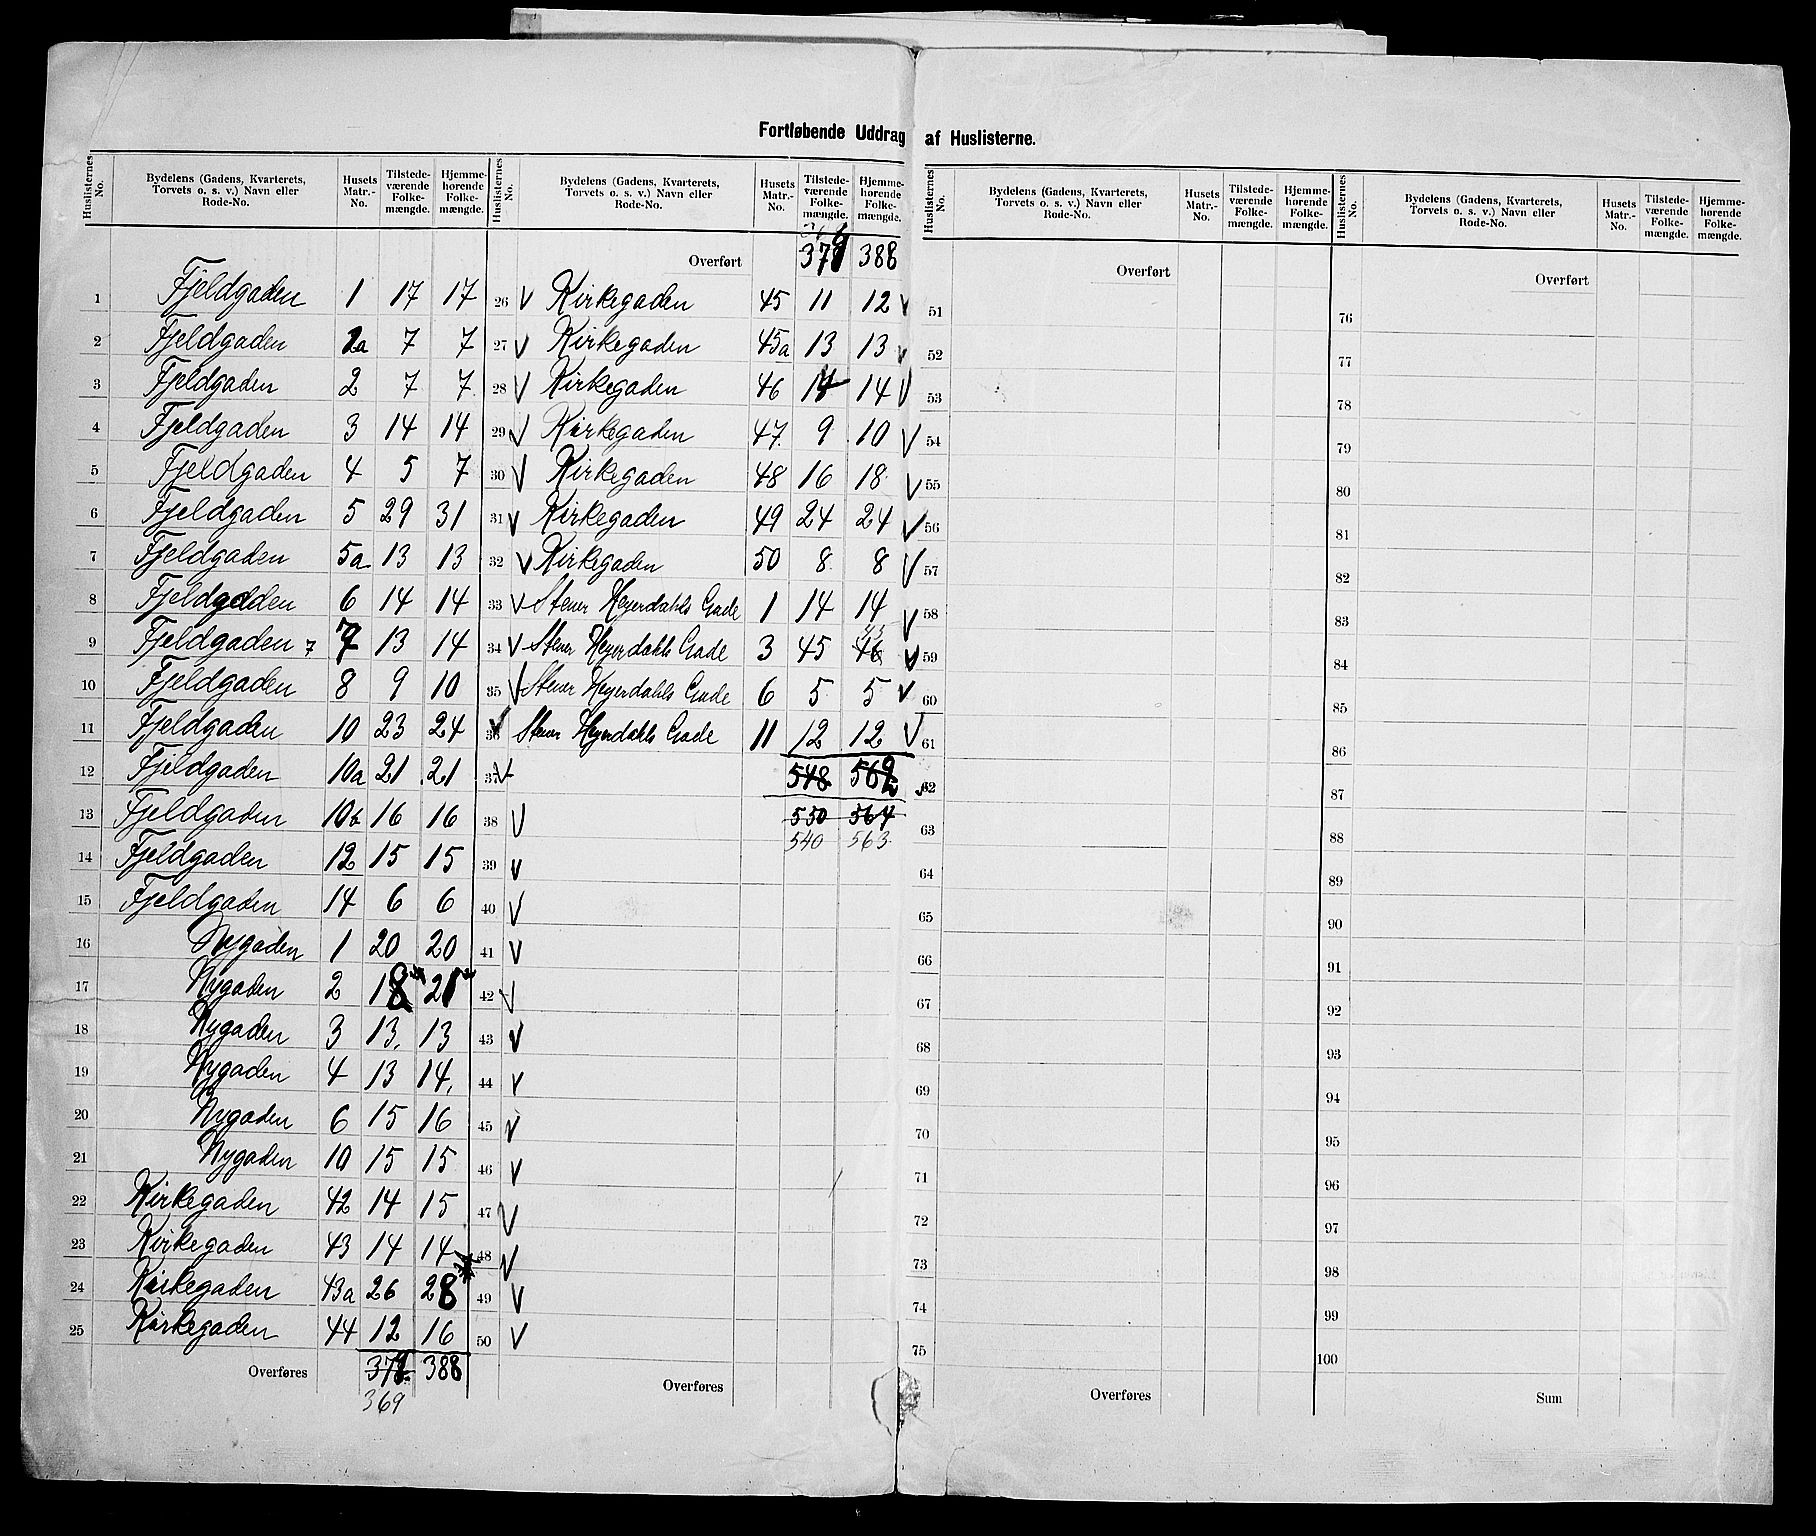 Fortløbende Uddrag af Huslisterne.
Huslisternes No. | Bydelens (Gadens, Kvarterets, Torvets o. s. v.) Navn eller Rode-No. | Husets Matr.-No. | Tilstedeværende Folkemængde. | Hjemmehørende Folkemængde.
1 Fjeldgaden 1 17 17
2 Fjeldgaden 1a 7 7
3 Fjeldgaden 2 7 7
4 Fjeldgaden 3 14 14
5 Fjeldgaden 4 5 7
6 Fjeldgaden 5 29 31
7 Fjeldgaden 5a 13 13
8 Fjeldgaden 6 14 14
9 Fjeldgaden 7 7 13 14
10 Fjeldgaden 8 9 10
11 Fjeldgaden 10 23 24
12 Fjeldgaden 10a 21 21
13 Fjeldgaden 10b 16 16
14 Fjeldgaden 12 15 15
15 Fjeldgaden 14 6 6
16 Nygaden 1 20 20
17 Nygaden 2 18 21
18 Nygaden 3 13 13
19 Nygaden 4 13 14
20 Nygaden 6 15 16
21 Nygaden 10 15 15
22 Kirkegaden 42 14 15
23 Kirkegaden 43 14 14
24 Kirkegaden 43a 26 28
25 Kirkegaden 44 12 16
Overføres 388
369
Huslisternes No. | Bydelens (Gadens, Kvarterets, Torvets o. s. v.) Navn eller Rode-No. | Husets Matr.-No. | Tilstedeværende Folkemængde. | Hjemmehørende Folkemængde.
Overført 388
26 V Kirkegaden 45 11 12 V
27 V Kirkegaden 45a 13 13 V
28 V Kirkegaden 46 14 14 V
29 V Kirkegaden 47 9 10 V
30 V Kirkegaden 48 16 18 V
31 V Kirkegaden 49 24 24 V
32 V Kirkegaden 50 8 8 V
33 V Stener Heyerdahls Gade 1 14 14 V
34 V Stener Heyerdahls Gade 3 45 46 V
35 V Stener Heyerdahls Gade 6 5 5 V
36 V Stener Heyerdahls Gade 11 12 12 V
37 V 548
38 V 550 564
540 563
39 V
40 V
41 V
42 V
43 V
44 V
45 V
46 V
47 V
48 V
49 V
50 V
Overføres
Huslisternes No. | Bydelens (Gadens, Kvarterets, Torvets o. s. v.) Navn eller Rode-No. | Husets Matr.-No. | Tilstedeværende Folkemængde. | Hjemmehørende Folkemængde.
Overført
51
52
53
54
55
56
57
58
59
60
61
62
63
64
65
66
67
68
69
70
71
72
73
74
75
Overføres
Huslisternes No. | Bydelens (Gadens, Kvarterets, Torvets o. s. v.) Navn eller Rode-No. | Husets Matr.-No. | Tilstedeværende Folkemængde. | Hjemmehørende Folkemængde.
Overført
76
77
78
79
80
81
82
83
84
85
86
87
88
89
90
91
92
93
94
95
96
97
98
99
100
Sum